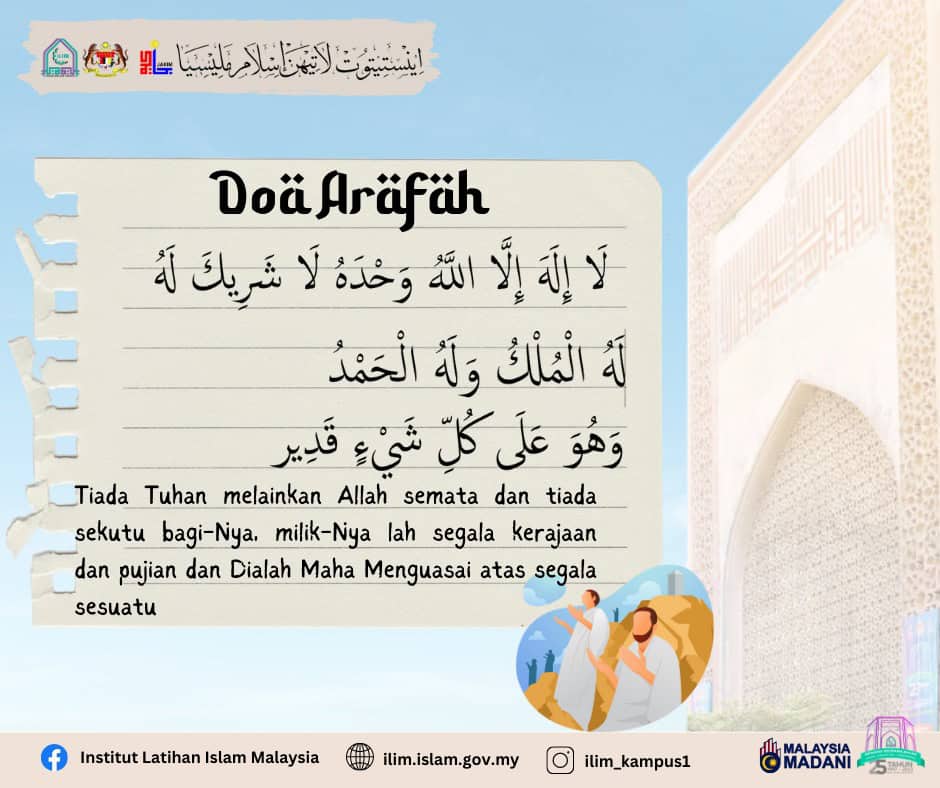 اينستيتوت لاتيهن إسلام مليسيا
Doa Arafah
لَا إِلَهَ إِلَّا اللَّهُ وَحْدَهُ لَا شَرِيكَ لَهُ
لَهُ الْمُلْكُ وَلَهُ الْحَمْدُ
وَهُوَ عَلَى كُلِّ شَيْءٍ قَدِير
Tiada Tuhan melainkan Allah semata dan tiada
sekutu bagi-Nya, milik-Nya lah segala kerajaan
dan pujian dan Dialah Maha Menguasai atas segala
sesuatu
Institut Latihan Islam Malaysia
ilim.islam.gov.my
ilim_kampus1
MALAYSIA
MADANI
25 TAHUN